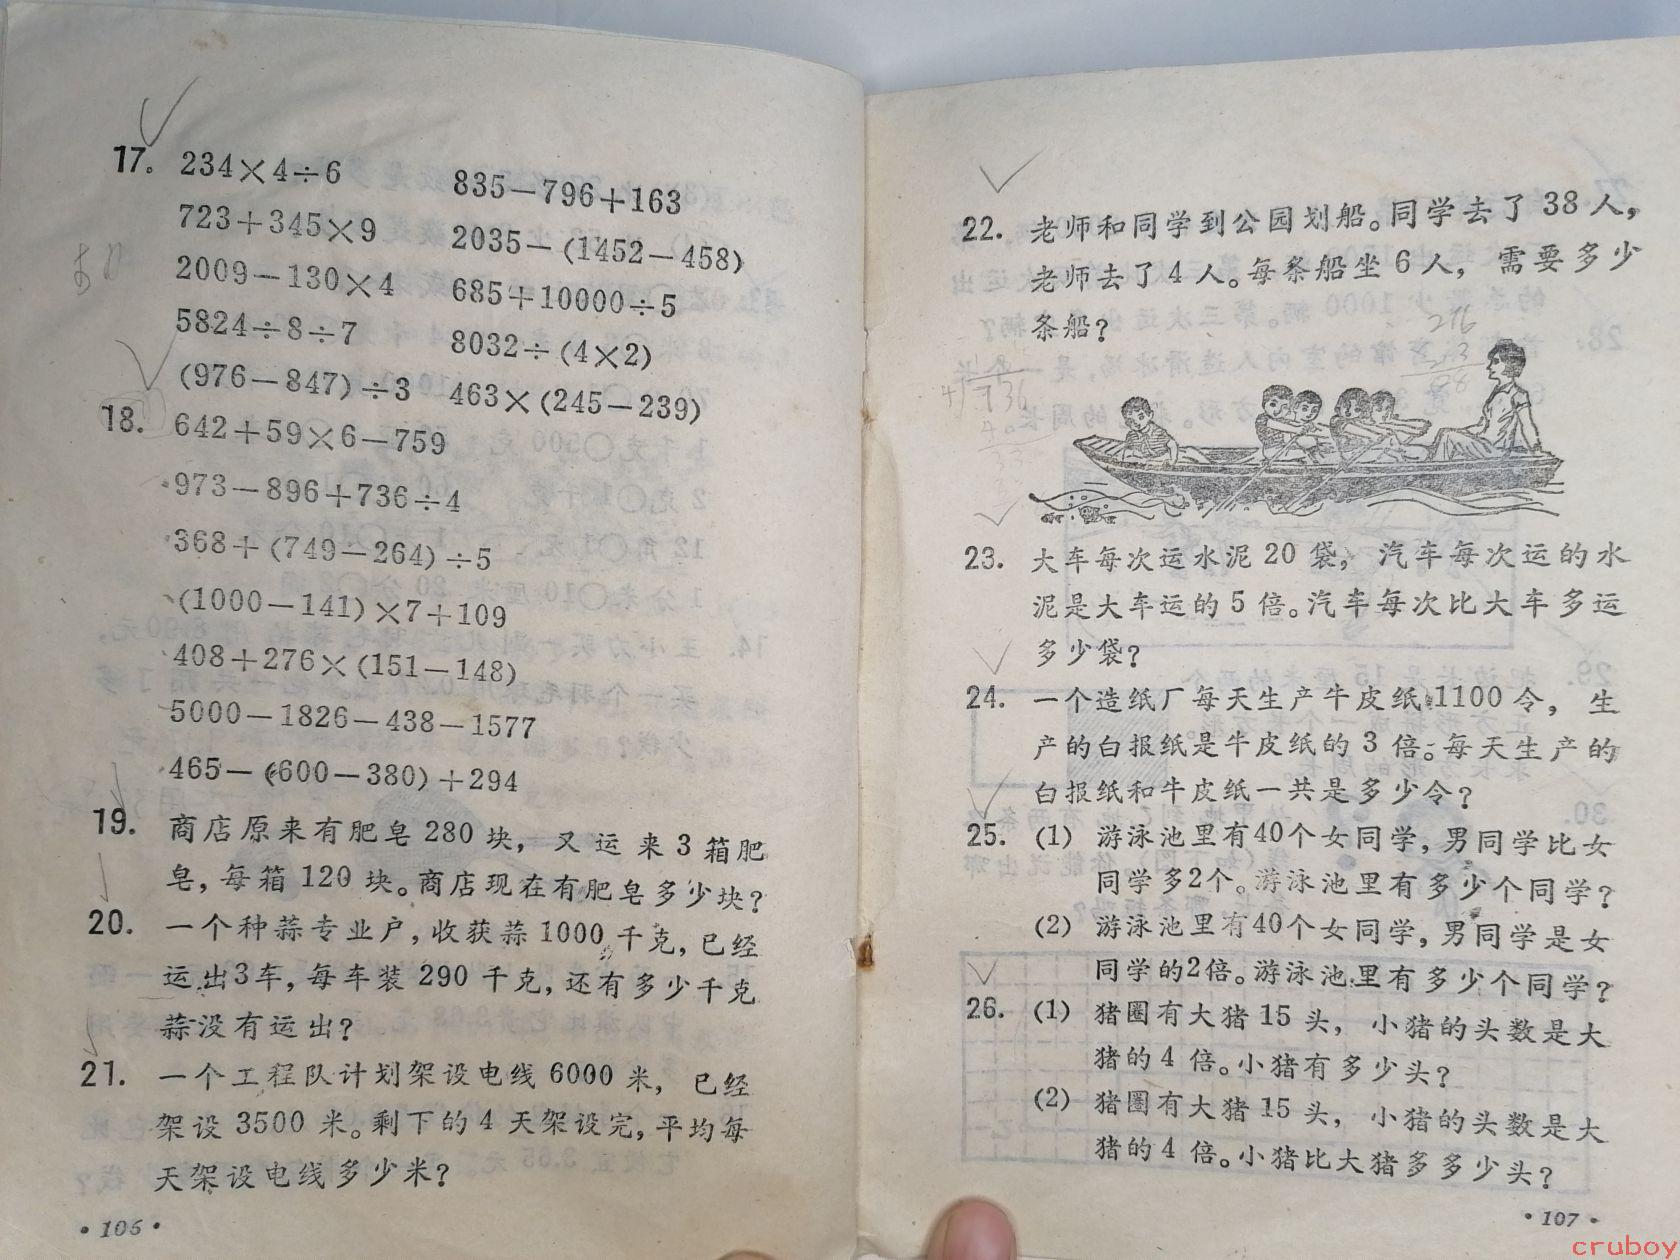 17. 234×4÷6 835-796+163
723+345×9 2035-(1452-458)
2009-130×4 685+10000÷5
5824÷8÷7 8032÷(4×2)
(976-847)÷3 463×(245-239)
18. 642+59×6-759
973-896+736÷4
368+(749-264)÷5
(1000-141)×7+109
408+276×(151-148)
5000-1826-438-1577
465-(600-380)+294
19. 商店原来有肥皂280块，又运来3箱肥
皂，每箱120块。商店现在有肥皂多少块？
20. 一个种蒜专业户，收获蒜1000千克，已经
运出3车，每车装290千克，还有多少千克
蒜没有运出？
21. 一个工程队计划架设电线6000米，已经
架设3500米。剩下的4天架设完，平均每
天架设电线多少米？
·106·
22. 老师和同学到公园划船。同学去了38人，
老师去了4人。每条船坐6人，需要多少
条船？
23. 大车每次运水泥20袋，汽车每次运的水
泥是大车运的5倍。汽车每次比大车多运
多少袋？
24. 一个造纸厂每天生产牛皮纸1100令，生
产的白报纸是牛皮纸的3倍。每天生产的
白报纸和牛皮纸一共是多少令？
25. (1) 游泳池里有40个女同学，男同学比女
同学多2个。游泳池里有多少个同学？
(2) 游泳池里有40个女同学，男同学是女
同学的2倍。游泳池里有多少个同学？
26. (1) 猪圈有大猪15头，小猪的头数是大
猪的4倍。小猪有多少头？
(2) 猪圈有大猪15头，小猪的头数是大
猪的4倍。小猪比大猪多多少头？
·107·
cruboy